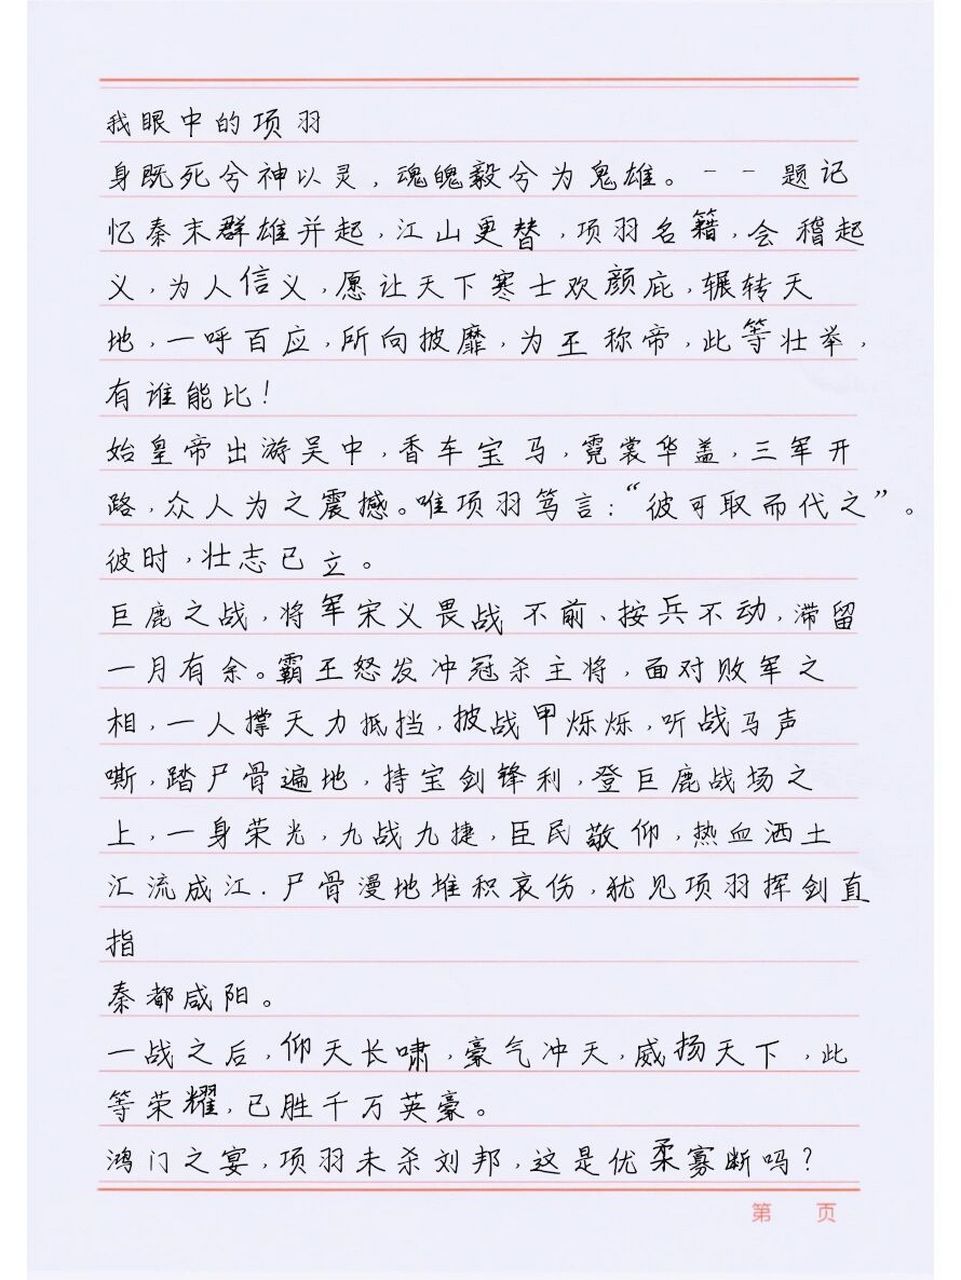 我眼中的项羽
身既死兮神以灵，魂魄毅兮为鬼雄。－－题记
忆秦末群雄并起，江山更替，项羽名籍，会稽起
义，为人信义，愿让天下寒士欢颜庇，辗转天
地，一呼百应，所向披靡，为王称帝，此等壮举，
有谁能比！
始皇帝出游吴中，香车宝马，霓裳华盖，三军开
路，众人为之震撼。唯项羽笃言：“彼可取而代之”。
彼时，壮志已立。
巨鹿之战，将军宋义畏战不前、按兵不动，滞留
一月有余。霸王怒发冲冠杀主将，面对败军之
相，一人撑天力抵挡，披战甲烁烁，听战马声
嘶，踏尸骨遍地，持宝剑锋利，登巨鹿战场之
上，一身荣光，九战九捷，臣民敬仰，热血洒土
汇流成江．尸骨漫地堆积哀伤，犹见项羽挥剑直
指
秦都咸阳。
一战之后，仰天长啸，豪气冲天，威扬天下，此
等荣耀，已胜千万英豪。
鸿门之宴，项羽未杀刘邦，这是优柔寡断吗？
第 页